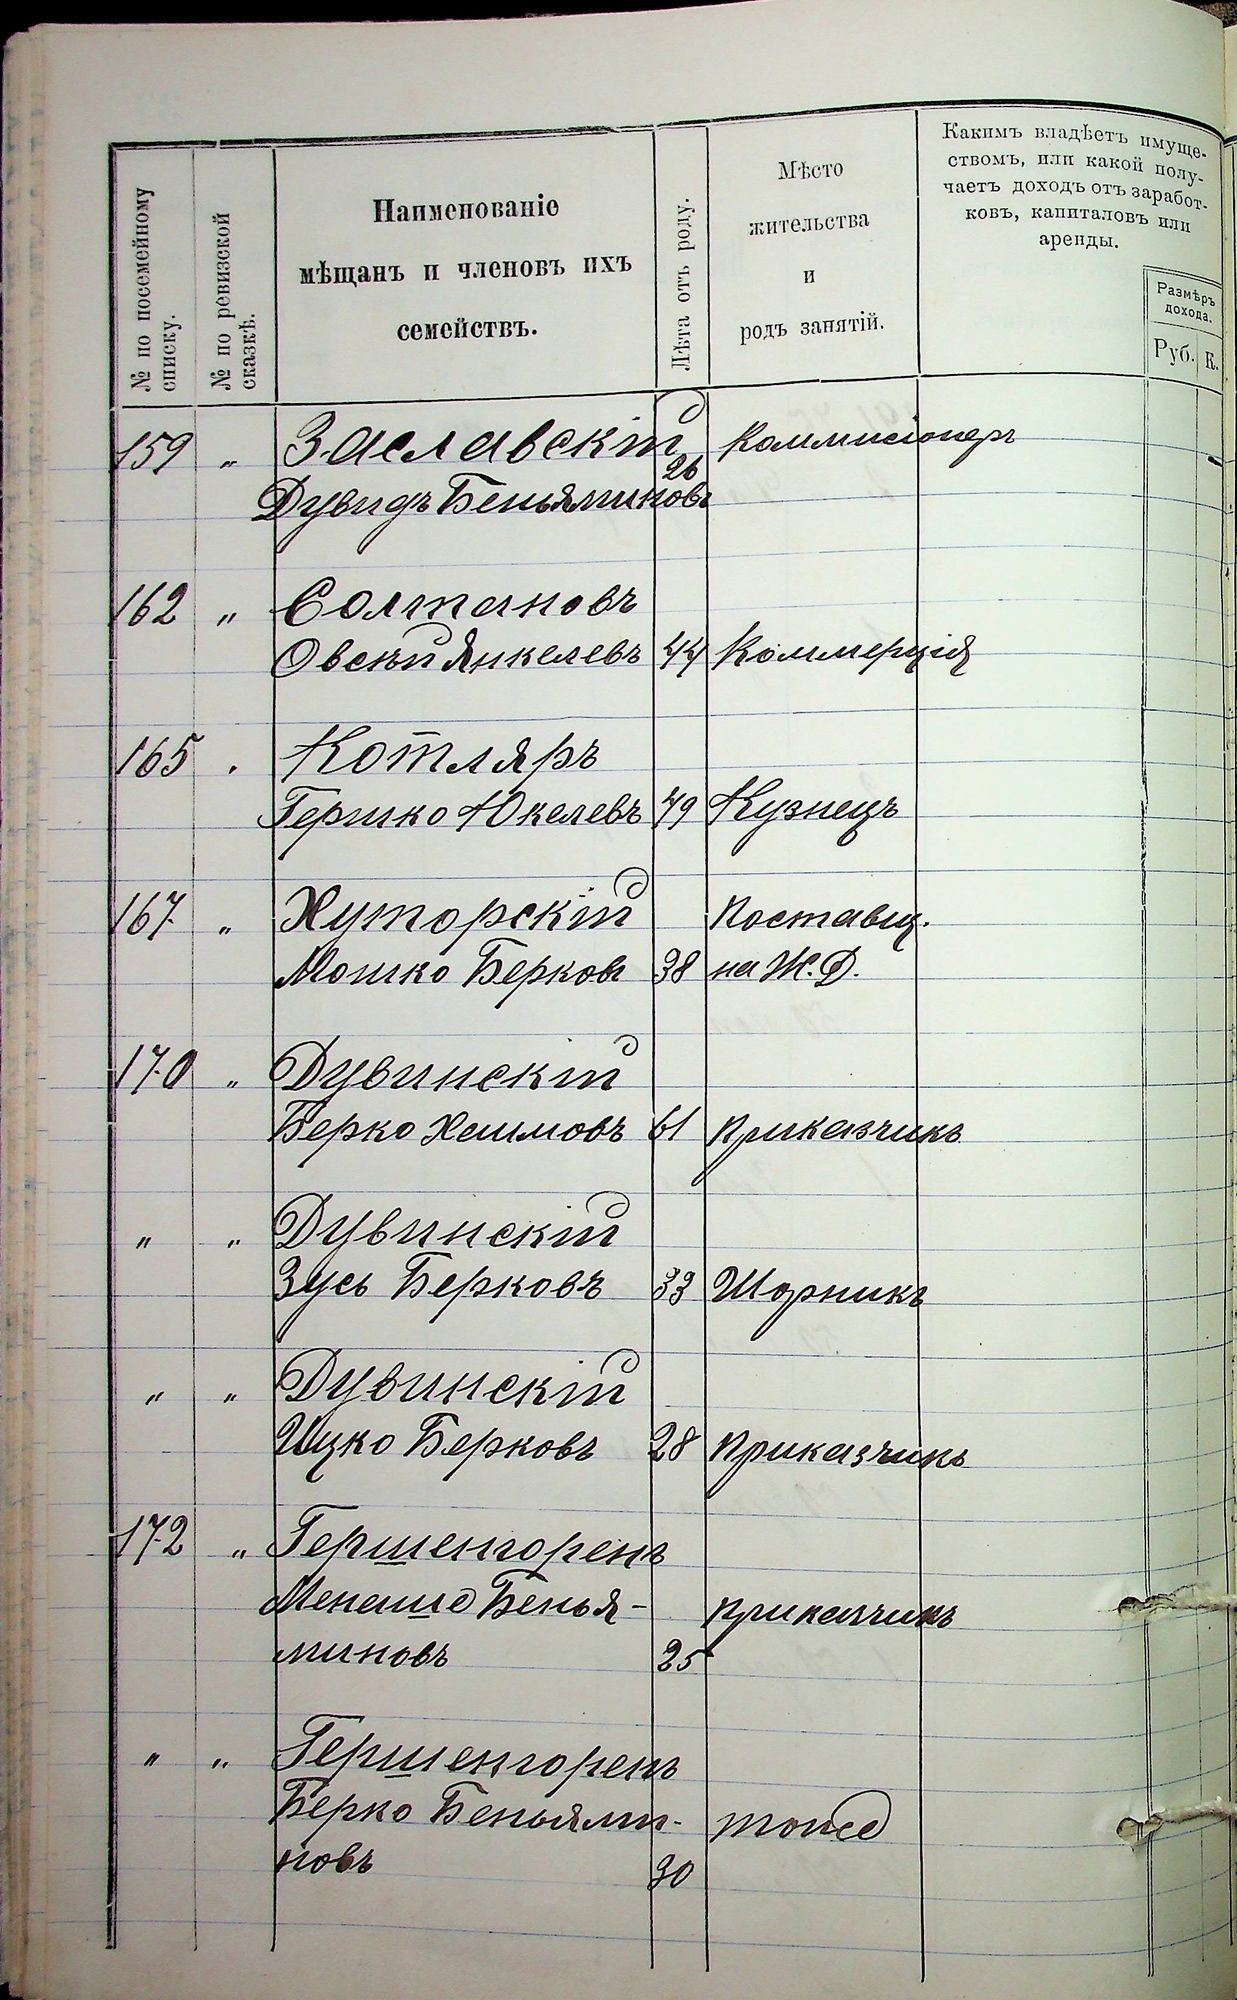 № по посемейному
списку.
№ по ревизской
сказкѣ.
Наименованіе
мѣщанъ и членовъ ихъ
семействъ.
Лѣта отъ роду.
Мѣсто
жительства
и
родъ занятій.
Какимъ владѣетъ имуще-
ствомъ, или какой полу-
чаетъ доходъ отъ заработ-
ковъ, капиталовъ или
аренды.
Размѣръ
дохода.
Руб. К.
159 „ Заславскій Коммисіонеръ
Дувидъ Беньяминовъ 26
162 „ Солтановъ
Овсѣй Янкелевъ 44 Коммерція
165 . Котляръ
Гершко Юкелевъ 49 Кузнецъ
167 „ Хуторскій Поставщ.
Мошко Берковъ 38 на Ж.Д.
170 „ Дувинскій
Берко Хаимовъ 61 приказчикъ
„ „ Дувинскій
Зусь Берковъ 33 Шорникъ
„ „ Дувинскій
Ицко Берковъ 28 приказчикъ
172 „ Гершенгоренъ
Менаше Бенья- приказчикъ
миновъ 25
„ „ Гершенгоренъ
Берко Беньями- тоже
новъ 30